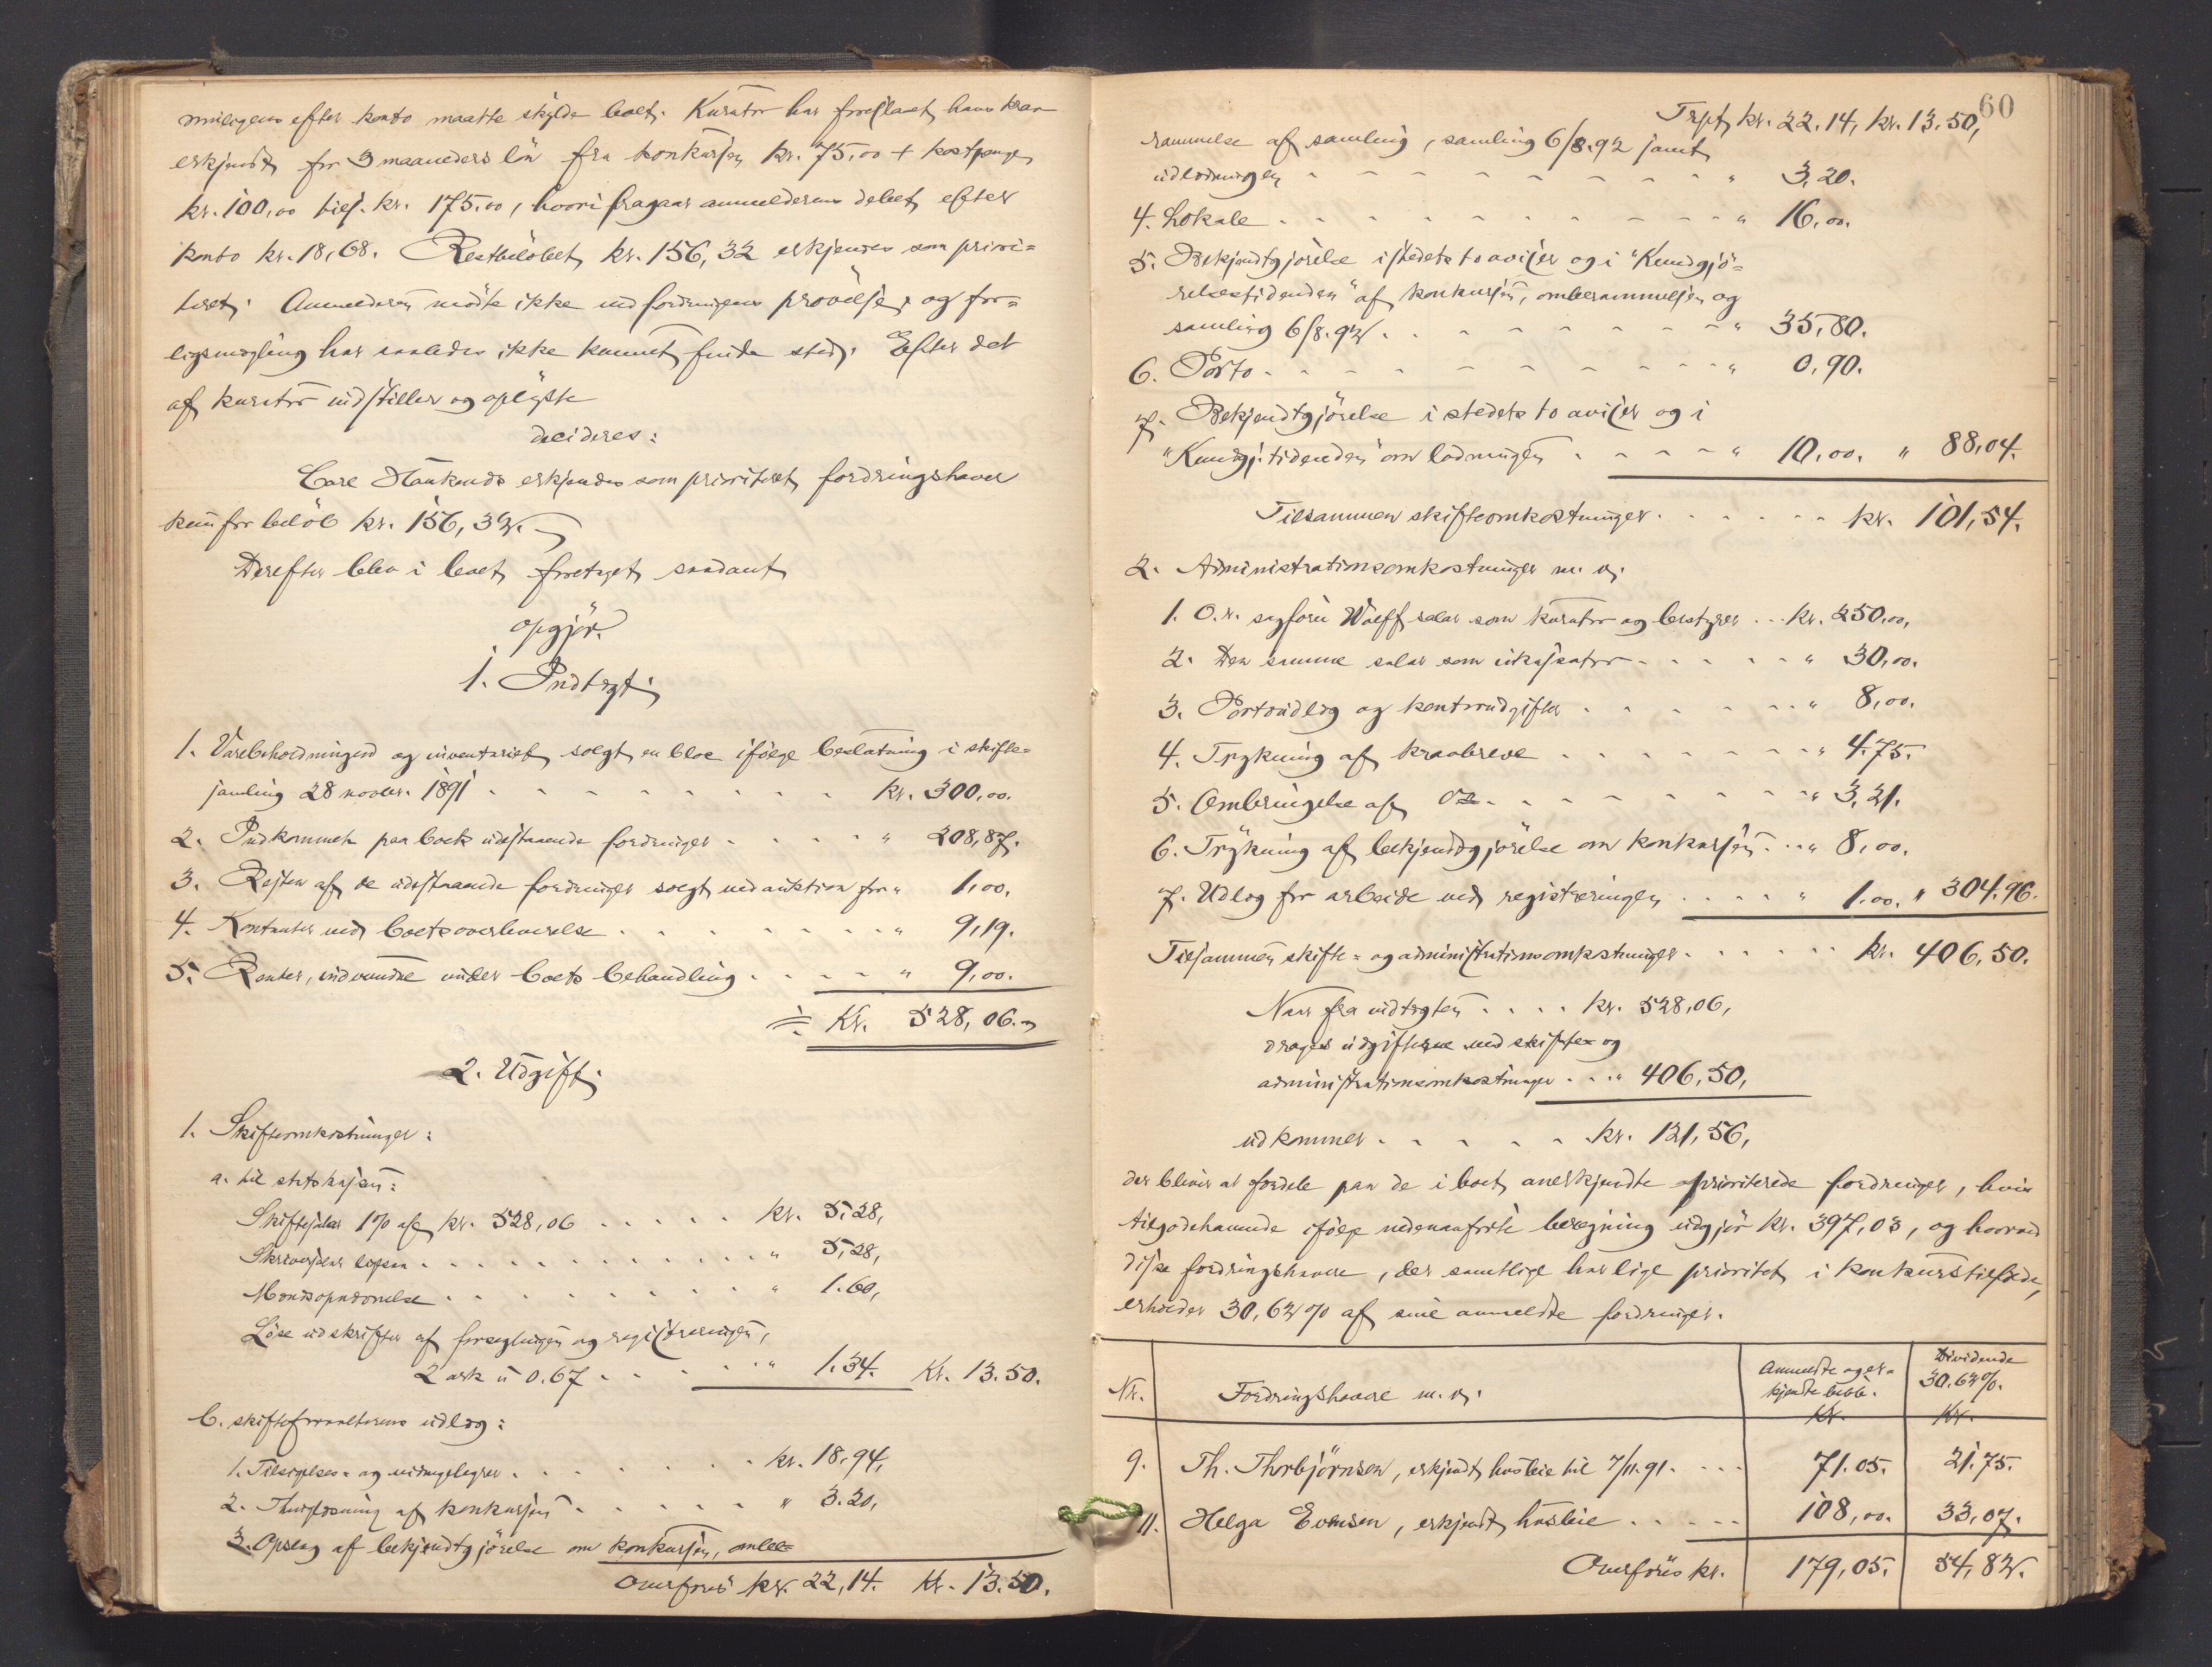 maatte skylde boet. Kurator har foreslaaet hans krav
erkjendt for 3 maaneders løn fra konkursen kr. 75,00 + kostpenge
kr. 100,00 tils. kr. 175,00, hvori fragaar anmelderens debet efter
konto kr. 18,68. Restbeløbet kr. 156,32 erkjendes som priori-
teret. Anmelderen mødte ikke ved fordringens prøvelse, og for-
ligsmægling har saaledes ikke kunnet finde sted. Efter det
af kurator indstillede og oplyste
decideres:
erkjendes som prioriteret fordringshaver
kun for beløb kr. 156,32.
Derefter blev i boet foretaget saadant
opgjør.
1. Indtægt.
1. Varebeholdningen og inventariet solgt en bloc ifølge beslutning i skifte-
samling 28 novbr. 1891 . . . kr. 300,00.
2. Indkommet paa boets udestaaende fordringer . . . " 208,87.
3. Resten af de udestaaende fordringer solgt ved auktion for " 1,00.
4. Kontanter ved boets overleverelse . . . " 9,19.
5. Renter, indvundne under boets behandling . . . " 9,00.
Kr. 528,06.
2. Udgift.
1. Skifteomkostninger:
a. til statskassen:
Skiftesalær 1% af kr. 528,06 . . . kr. 5,28,
Skriversalær ligesaa . . . " 5,28,
. . . " 1.60,
Løse udskrifter af forseglingen og registreringen,
2 ark à 0.67 . . . " 1.34. Kr. 13.50.
b. skifteforvalterens udlæg:
1. Tilsigelses- og . . . kr. 18,94,
2. Thinglæsning af konkursen . . . " 3.20,
3. Opslag af bekjendtgjørelse om konkursen, ombe-
Overføres kr. 22,14. Kr. 13.50.
60
Trpt. kr. 22.14, kr. 13.50,
rammelse af samling, samling 6/8.92 samt
udlodningen . . . " 3,20.
4. Lokale . . . " 16,00.
5. Bekjendtgjørelse i stedets to aviser og i "Kundgjø-
relsestidenden" af konkursen, omberammelsen og
samling 6/8.92 . . . " 35,80.
6. Porto . . . " 0,90.
7. Bekjendtgjørelse i stedets to aviser og i
"Kundgj.tidenden" om lodningen . . . " 10,00. " 88,04.
Tilsammen skifteomkostninger . . . kr. 101,54.
2. Administrationsomkostninger m. v.
1. O.r. sagfører Wolff salær som kurator og bestyrer . . . kr. 250,00,
2. Den samme salær som inkassator . . . " 30,00.
3. Portoudlæg og kontorudgifter . . . " 8,00.
4. Trykning af kravbreve . . . " 4.75.
5. Ombringelse af do . . . " 3,21.
6. Trykning af bekjendtgjørelse om konkursen . . . " 8,00.
7. Udlæg for arbeide ved registreringen . . . " 1.00. " 304.96.
Tilsammen skifte- og administrationsomkostninger . . . kr. 406,50.
Naar fra indtægten . . . kr. 528,06,
drages udgifterne ved skifte- og
administrationsomkostninger . . . " 406,50,
udkommer . . . kr. 121,56,
der bliver at fordele paa de i boet anerkjendte prioriterede fordringer, hvis
tilgodehavende ifølge nedenanførte beregning udgjør kr. 397,03, og hvorved
disse fordringshavere, der samtlige har lige prioritet i konkurstilfælde,
erholder 30,62% af sine anmeldte fordringer.
Nr. Fordringshavere m. v. Anmeldte og er-
kjendte beløb. Dividende
30.62%.
Kr. Kr.
9. Th. Thorbjørnsen, erkjendt husleie til 7/11.91. . . . 71.05. 21.75.
11. Helga Evensen, erkjendt husleie . . . 108,00. 33,07.
Overføres kr. 179,05. 54,82.